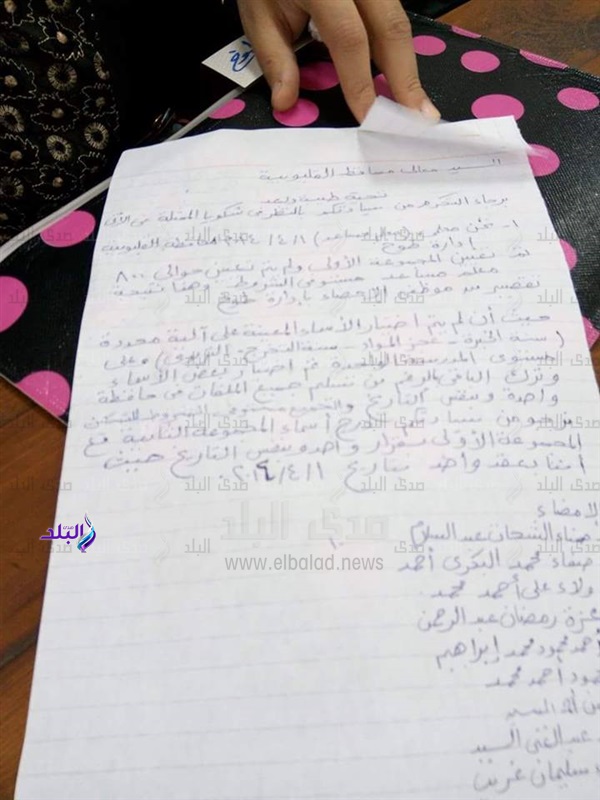 السيد معالى محافظ القليوبية
تحية طيبة وبعد
برجاء التكرم من سيادتكم بالنظر فى شكوانا المتمثلة فى الآتى
١- نحن معلم مساعد ٢٠١٤/٤/١ محافظة القليوبية
إدارة طوخ
تم تعيين المجموعة الأولى ولم يتم تعيين حوالى ٨٠٠
معلم مساعد مستوفى الشروط وهذا نتيجة
تقصير من موظفى الإحصاء بإدارة طوخ
حيث أن لم يتم اختيار الأسماء المعينة على آلية محددة
(سنة الخبرة - عجز المواد - سنة التخرج - الترتيب) وعلى
مستوى المدرسة الواحدة تم اختيار بعض الأسماء
وترك الباقى بالرغم من تسليم جميع الملفات فى حافظة
واحدة وبنفس التاريخ والجميع مستوفى الشروط للتعيين
نرجو من سيادتكم إدراج أسماء المجموعة الثانية مع
المجموعة الأولى بقرار واحد وبنفس التاريخ حيث
أننا بعقد واحد بتاريخ ٢٠١٤/٤/١
الإمضاء
هناء الشحات عبد السلام
صفاء محمد البكرى أحمد
ولاء على أحمد محمد
عزة رمضان عبد الرحمن
أحمد محمود محمد إبراهيم
محمود أحمد محمد
السيد
عبد الغنى السيد
سليمان غريب
صدى البلد
www.elbalad.news